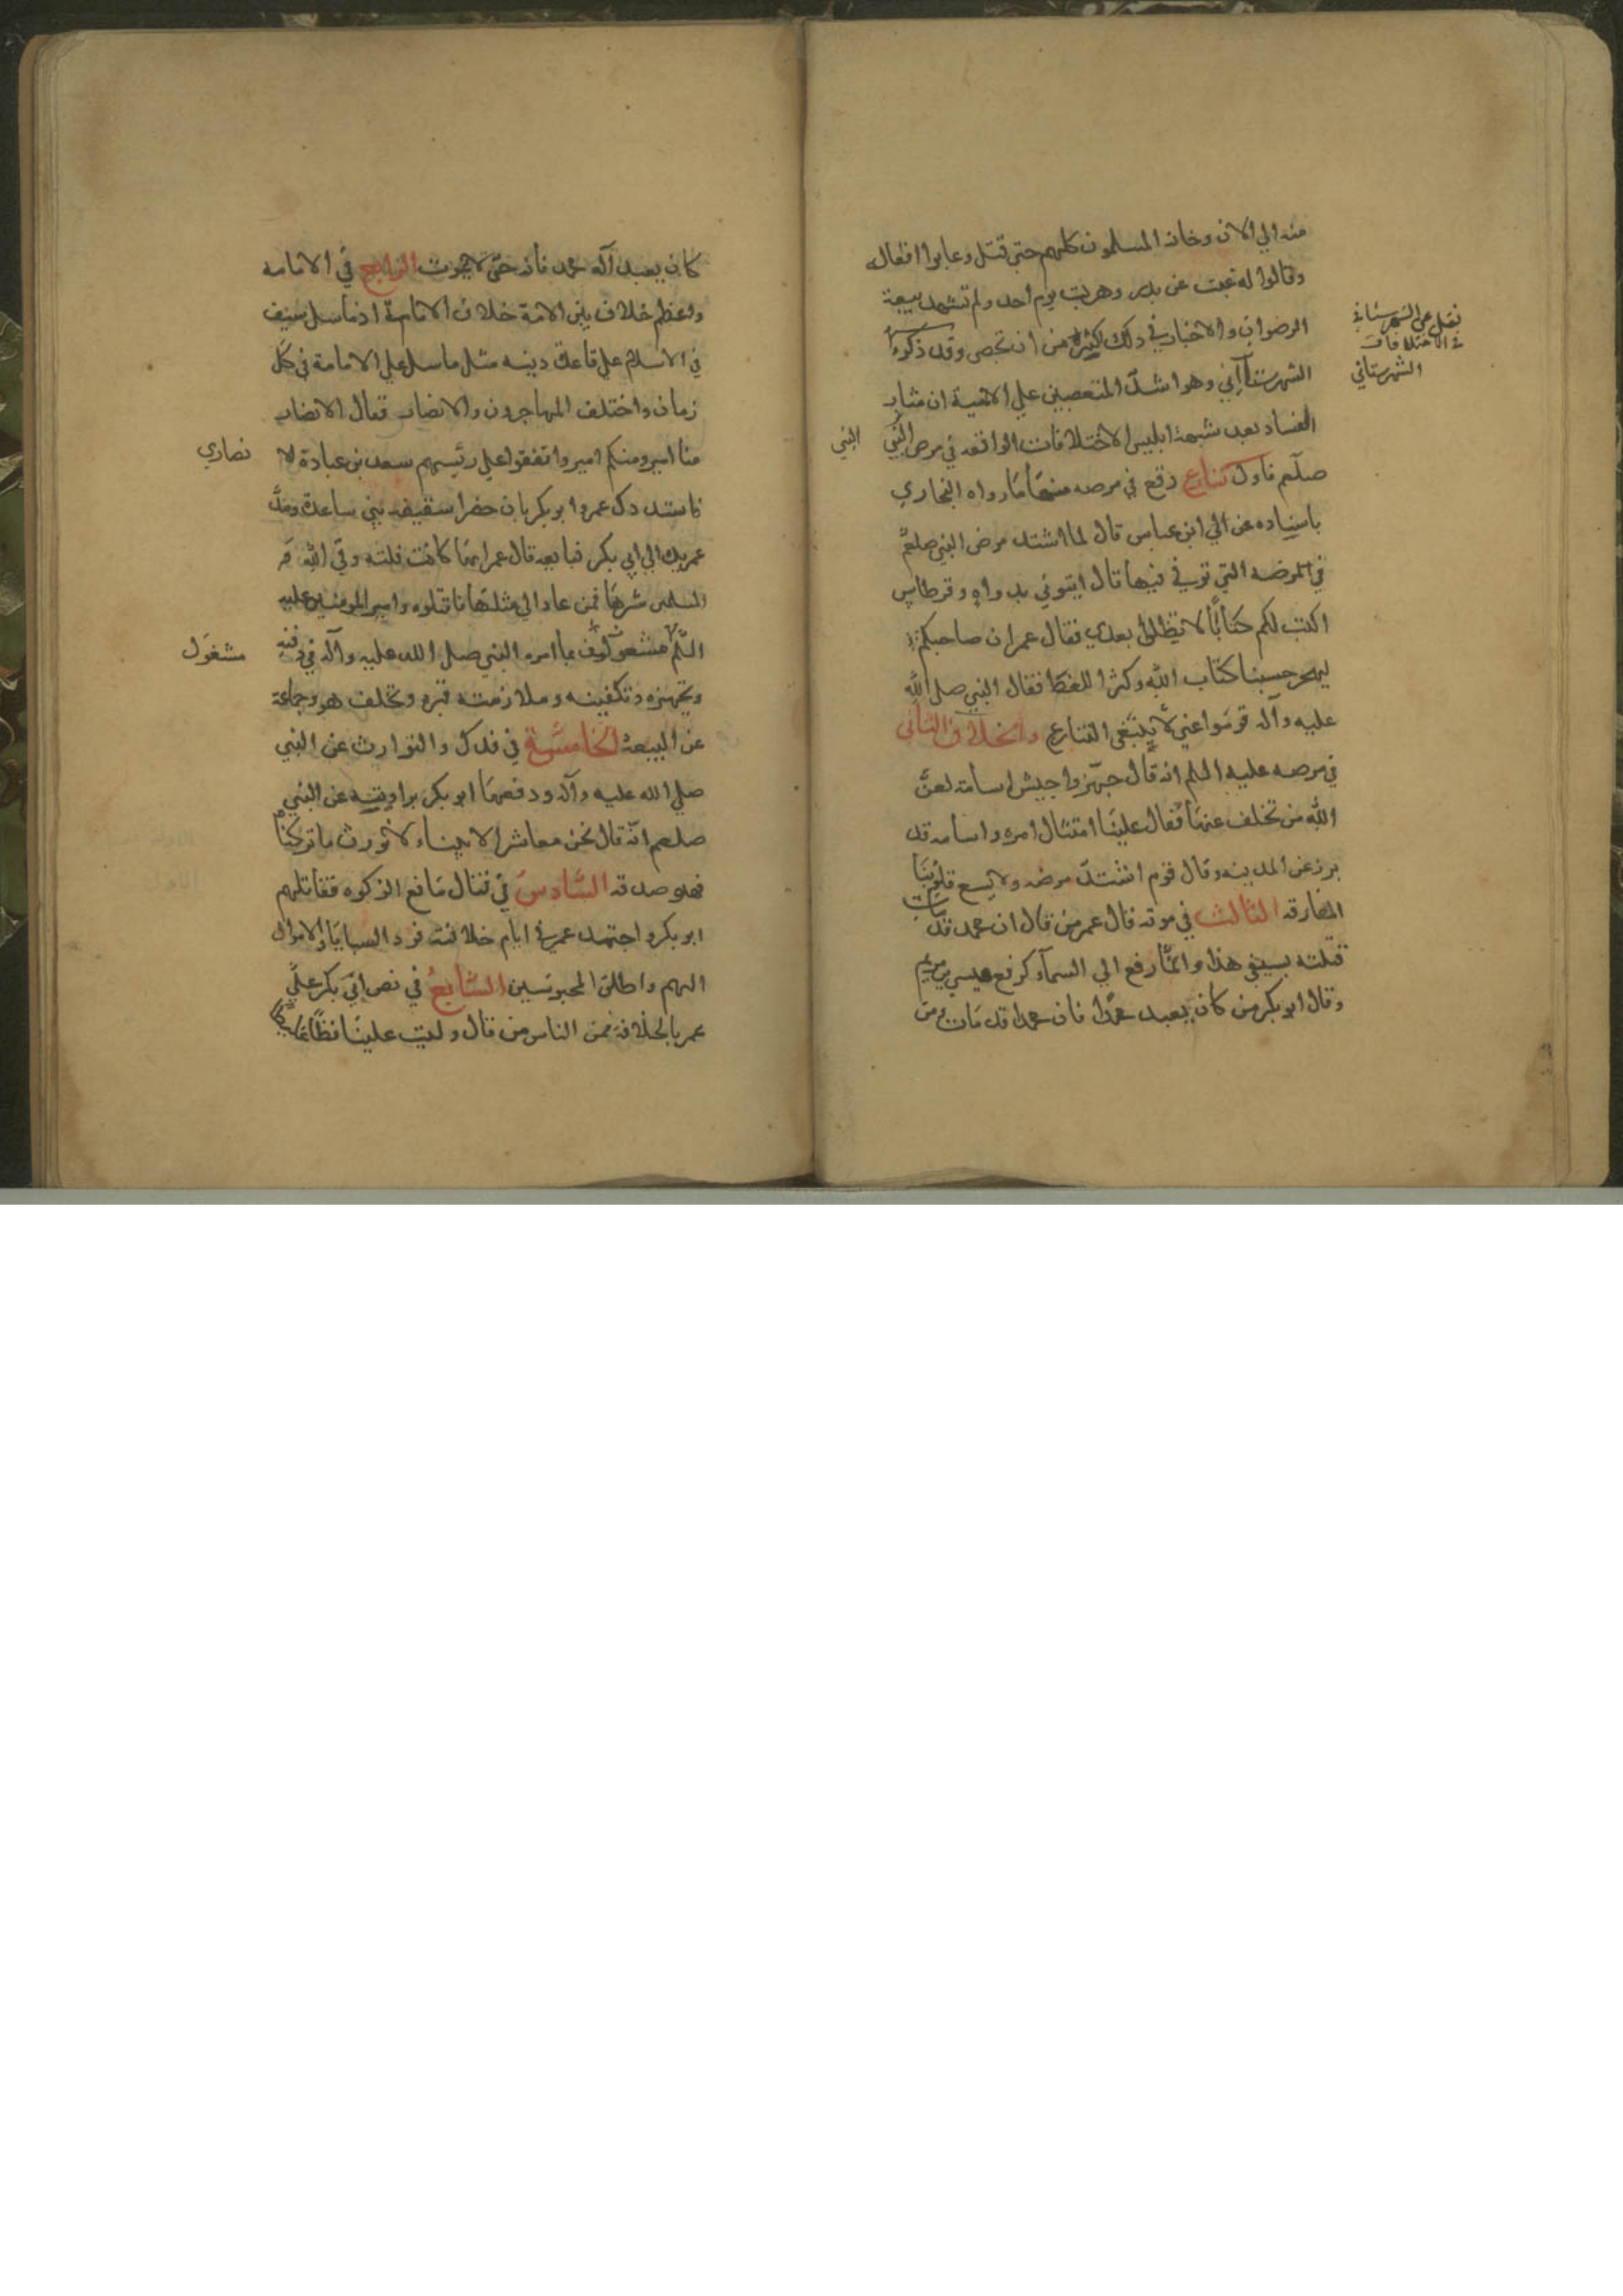 منه الي الان وخانه المسلمون كلهم حتى قتل وعابوا افعاله
وقالوا له غبت عن بدر وهربت يوم احد ولم تشهد بيعة
الرضوان والاخبار في ذلك كثيرة من ان تحصى وقد ذكر
الشهرستاني وهو اشد المتعصبين علي الامامية ان مثار
الفساد بعد شبهة ابليس الاختلافات الواقعه في مرض النبي
صلعم فاول تنازع وقع في مرضه منها ما رواه البخاري
باسناده عن الي ابن عباس قال لما اشتد مرض النبي صلعم
في المرضه التي توفي فيها قال ايتوني بدواه وقرطاس
اكتب لكم كتابًا لا تظلوا بعدي فقال عمر ان صاحبكم
ليهجر حسبنا كتاب الله وكثر اللغط فقال النبي صلي الله
عليه وآله قوموا عني لا ينبغي التنازع والخلاف الثاني
في مرضه عليه السلم انه قال جهزوا جيش اسامة لعن
الله من تخلف عنها فقال علينا امتثال امره واسامه قد
برز عن المدينه وقال قوم اشتد مرضه ولا يسع قلوبنا
المفارقه الثالث في موته قال عمر من قال ان محمد قد مات
قتلته بسيفي هذا وانما رفع الي السماء كما رفع عيسى بن مريم
وقال ابو بكر من كان يعبد محمدا فان محمدا قد مات ومن
نقل عن الشهرستاني
في الاختلافات
الشهرستاني
النبي
كان يعبد آله محمد فانه حي لا يموت الرابع في الامامه
واعظم خلاف بين الامة خلاف الامامة اذ ما سل سيف
في الاسلام علي قاعدة دينيه مثل ما سل علي الامامة في كل
زمان واختلف المهاجرون والانصار فقال الانصار
منا امير ومنكم امير واتفقوا علي رئيسهم سعد بن عبادة الا
نصاري
فاستدرك عمر وابو بكر بان حضرا سقيفه بني ساعدة ومد
عمر يده الي ابي بكر فبايعه قال عمر انها كانت فلته وقي الله
المسلمين شرها فمن عاد الي مثلها فاقتلوه وامير المومنين عليه
السلم مشغول بما امره النبي صلي الله عليه وآله في دفنه
مشغول
وتجهيزه وتكفينه وملازمته قبره وتخلف هو وجماعة
عن البيعة الخامسة في فدك والتوارث عن النبي
صلي الله عليه وآله ودفعها ابو بكر براويته عن النبي
صلعم انه قال نحن معاشر الانبياء لا نورث ما تركناه
فهو صدقه السادس في قتال مانع الزكوه فقاتلهم
ابو بكر واجتهد عمر في ايام خلافته فرد السبايا والاموال
اليهم واطلق المحبوسين السابع في نص ابي بكر علي
عمر بالخلافة فمن الناس من قال وليت علينا فظًا غليظًا